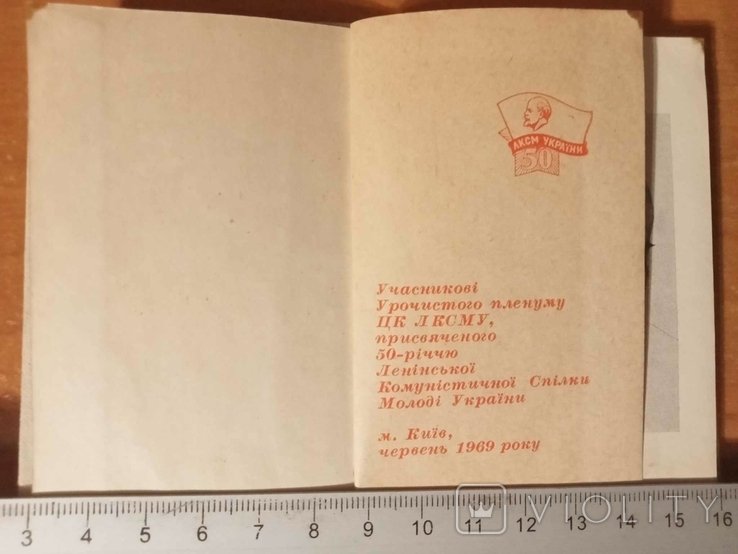 ЛКСМ УКРАЇНИ
50
Учасникові
Урочистого пленуму
ЦК ЛКСМУ,
присвяченого
50-річчю
Ленінської
Комуністичної Спілки
Молоді України
м. Київ,
червень 1969 року
VIOLITY
3 4 5 6 7 8 9 10 11 12 13 14 15 16